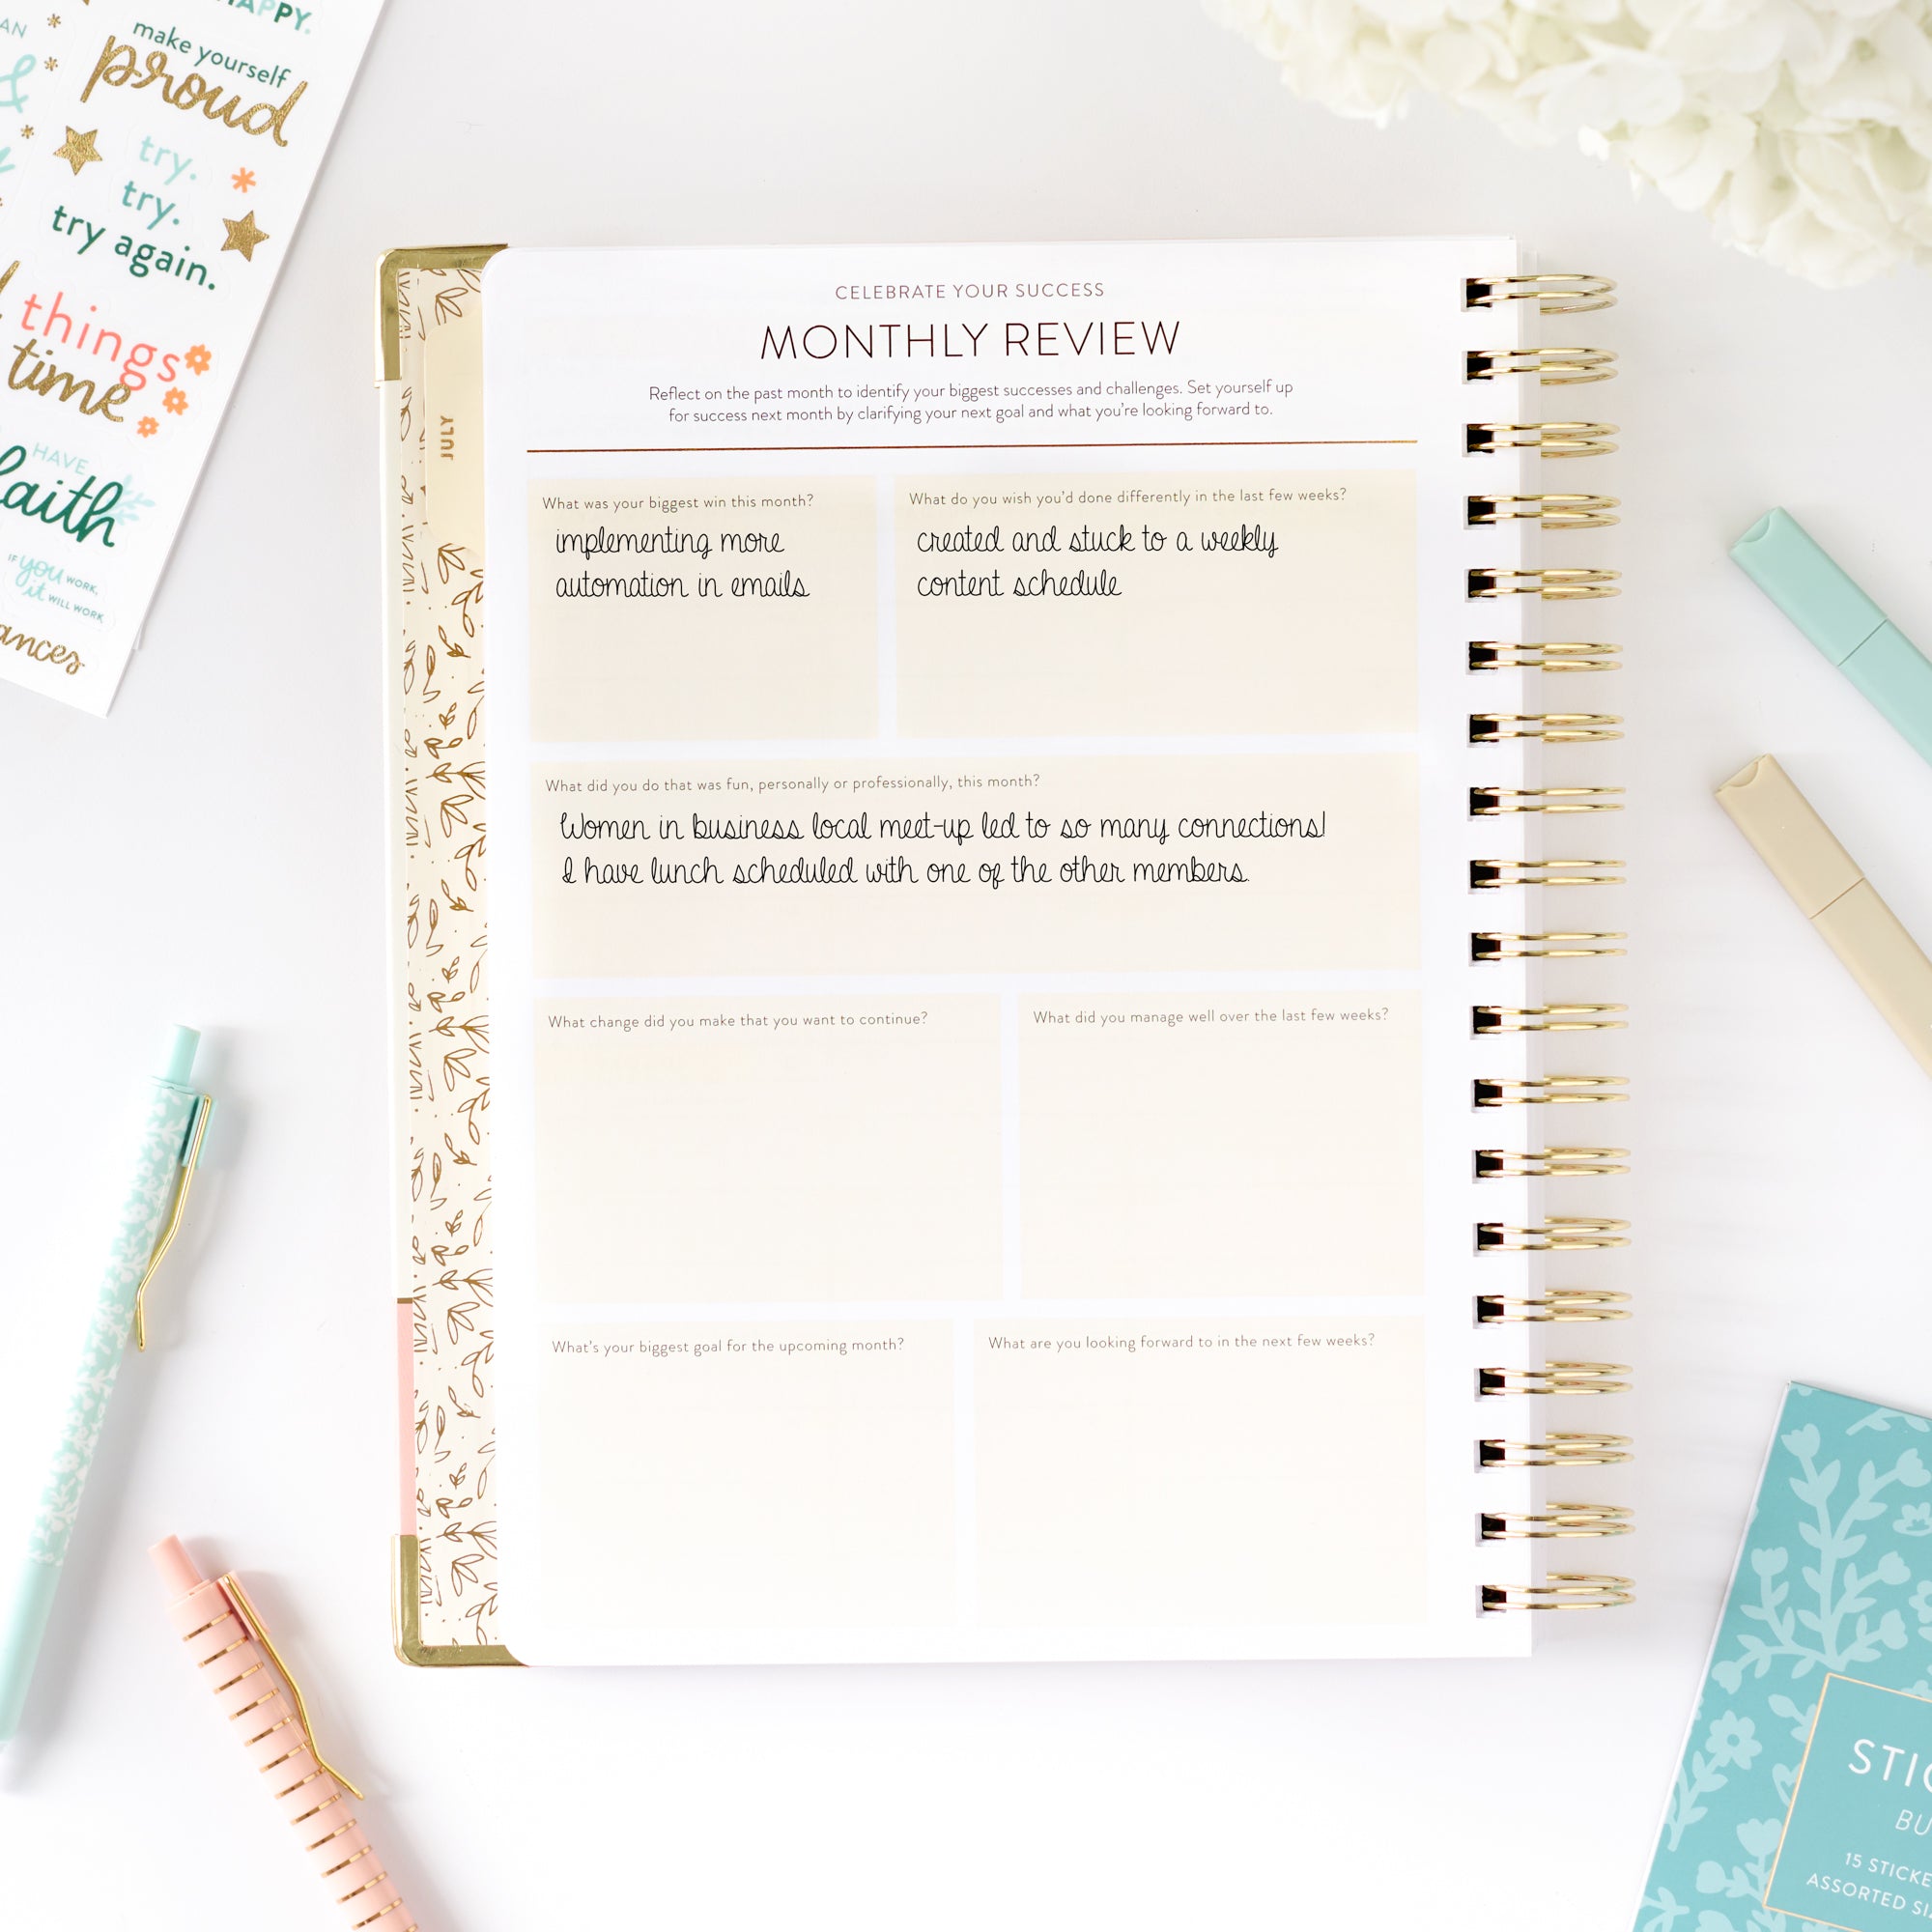 HAPPY.
AN
make yourself
proud
&
try.
try.
try again.
things
time
HAVE
faith
IF you WORK,
it WILL WORK
ances
JULY
CELEBRATE YOUR SUCCESS
MONTHLY REVIEW
Reflect on the past month to identify your biggest successes and challenges. Set yourself up
for success next month by clarifying your next goal and what you're looking forward to.
What was your biggest win this month?
implementing more
automation in emails
What do you wish you'd done differently in the last few weeks?
created and stuck to a weekly
content schedule
What did you do that was fun, personally or professionally, this month?
Women in business local meet-up led to so many connections!
I have lunch scheduled with one of the other members.
What change did you make that you want to continue?
What did you manage well over the last few weeks?
What's your biggest goal for the upcoming month?
What are you looking forward to in the next few weeks?
STIC
BU
15 STICKE
ASSORTED SI